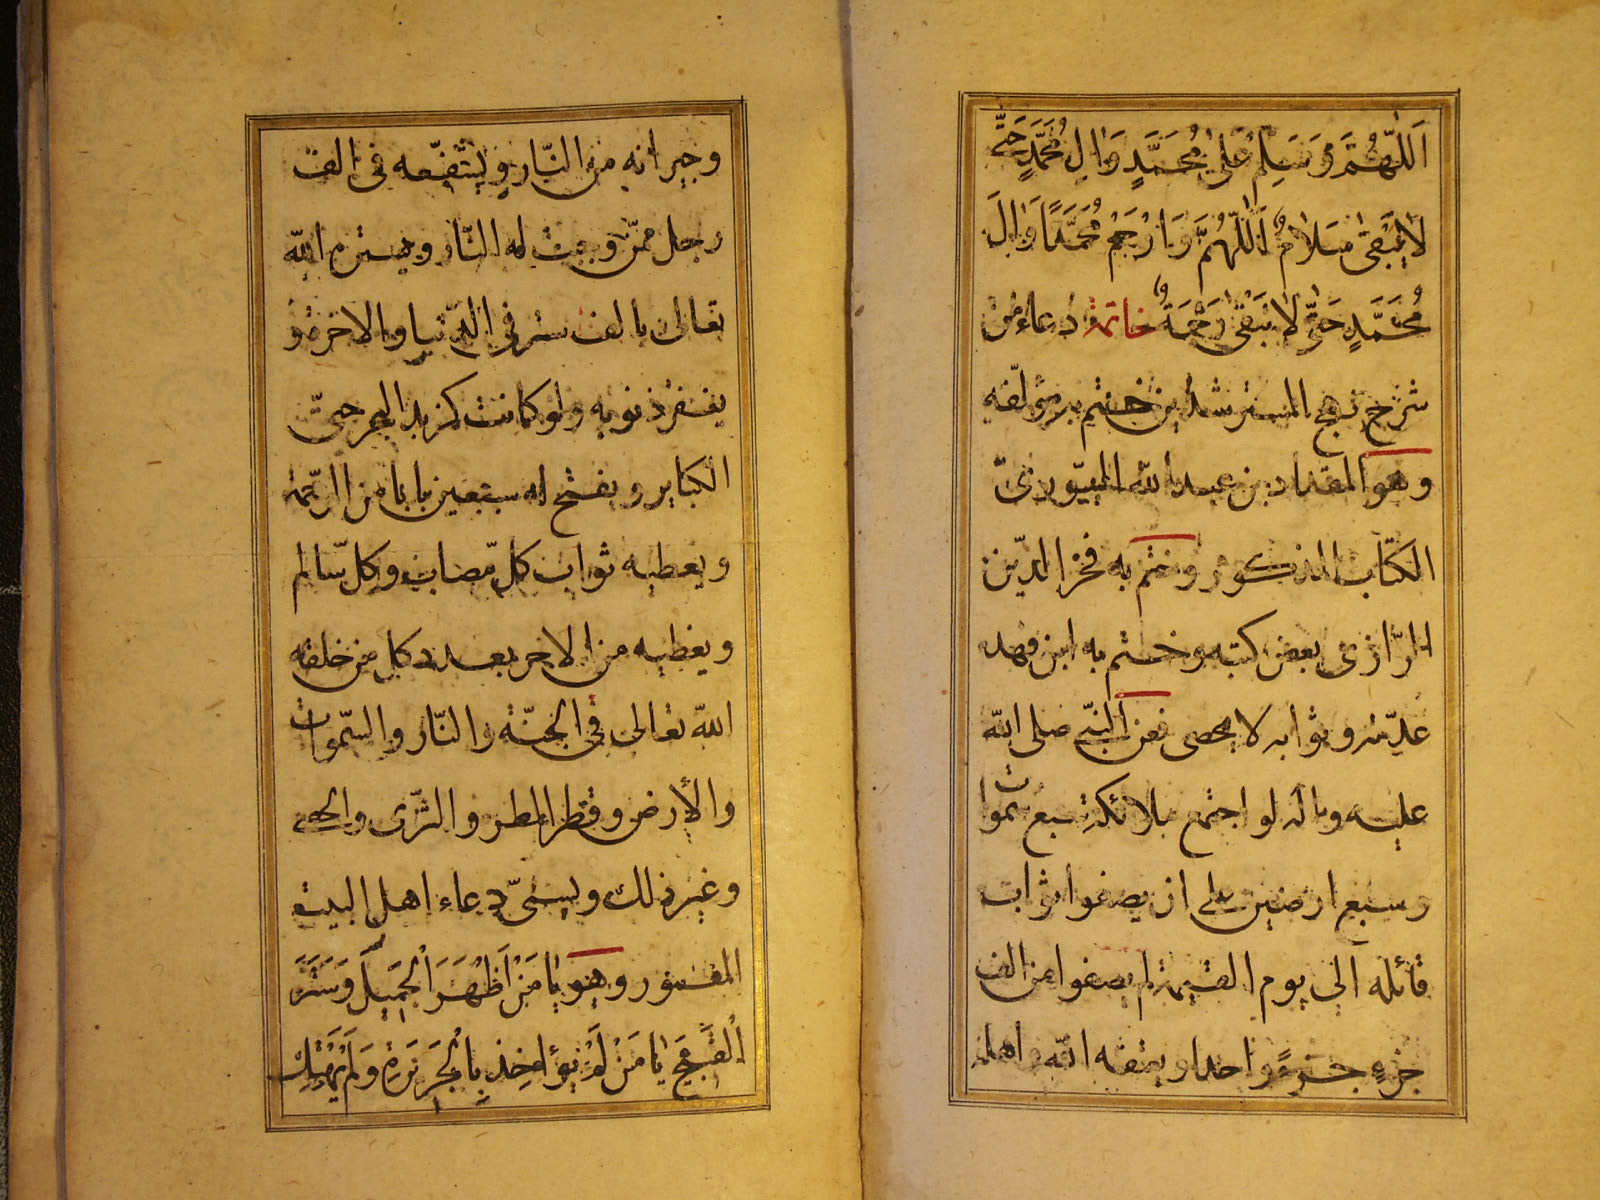 اَللّٰهُمَّ وَسَلِّمْ عَلٰى مُحَمَّدٍ وَاٰلِ مُحَمَّدٍ حَتّٰى
لاٰيَبْقٰى سَلاٰمٌ اَللّٰهُمَّ وَارْحَمْ مُحَمَّدًا وَاٰلَ
مُحَمَّدٍ حَتّٰى لاٰ تَبْقٰى رَحْمَةٌ خاتمة دعاء من
شرح نهج المسترشدين ختم به مؤلفه
وهو المقداد بن عبد الله السيّورىّ
الكتاب المذكور وختم به فخر الدّين
الرّازى بعض كتبه وختم به ابن فهد
عدّته وثوابه لا يحصى فعن النبىّ صلى الله
عليه واله لو اجتمع ملائكة سبع سموات
وسبع ارضين على ان يصفوا ثواب
قائله الى يوم القيمة لم يصفوا من الف
جزءٍ جزءً واحدا ويعتقه الله واهله
وجيرانه من النّار ويشفّعه فى الف
رجل ممّن وجبت له النّار ويستره الله
تعالى بالف ستر فى الدّنيا والاخرة و
يغفر ذنوبه ولو كانت كزبد البحر حتّى
الكباير ويفتح له سبعين بابا من الرّحمة
ويعطيه ثواب كلّ مصاب وكلّ سالم
ويعطيه من الاجر بعدد كل من خلقه
الله تعالى فى الجنّة والنّار والسّموات
والأرض وقطر المطر والثّرى والحصى
وغير ذلك ويسمّى دعاء اهل البيت
المعمور وهو يٰا مَنْ اَظْهَرَ الْجَمِيلَ وَسَتَرَ
الْقَبِيحَ يٰا مَنْ لَمْ يُؤٰاخِذْ بِالْجَرِيرَةِ وَلَمْ يَهْتِكِ